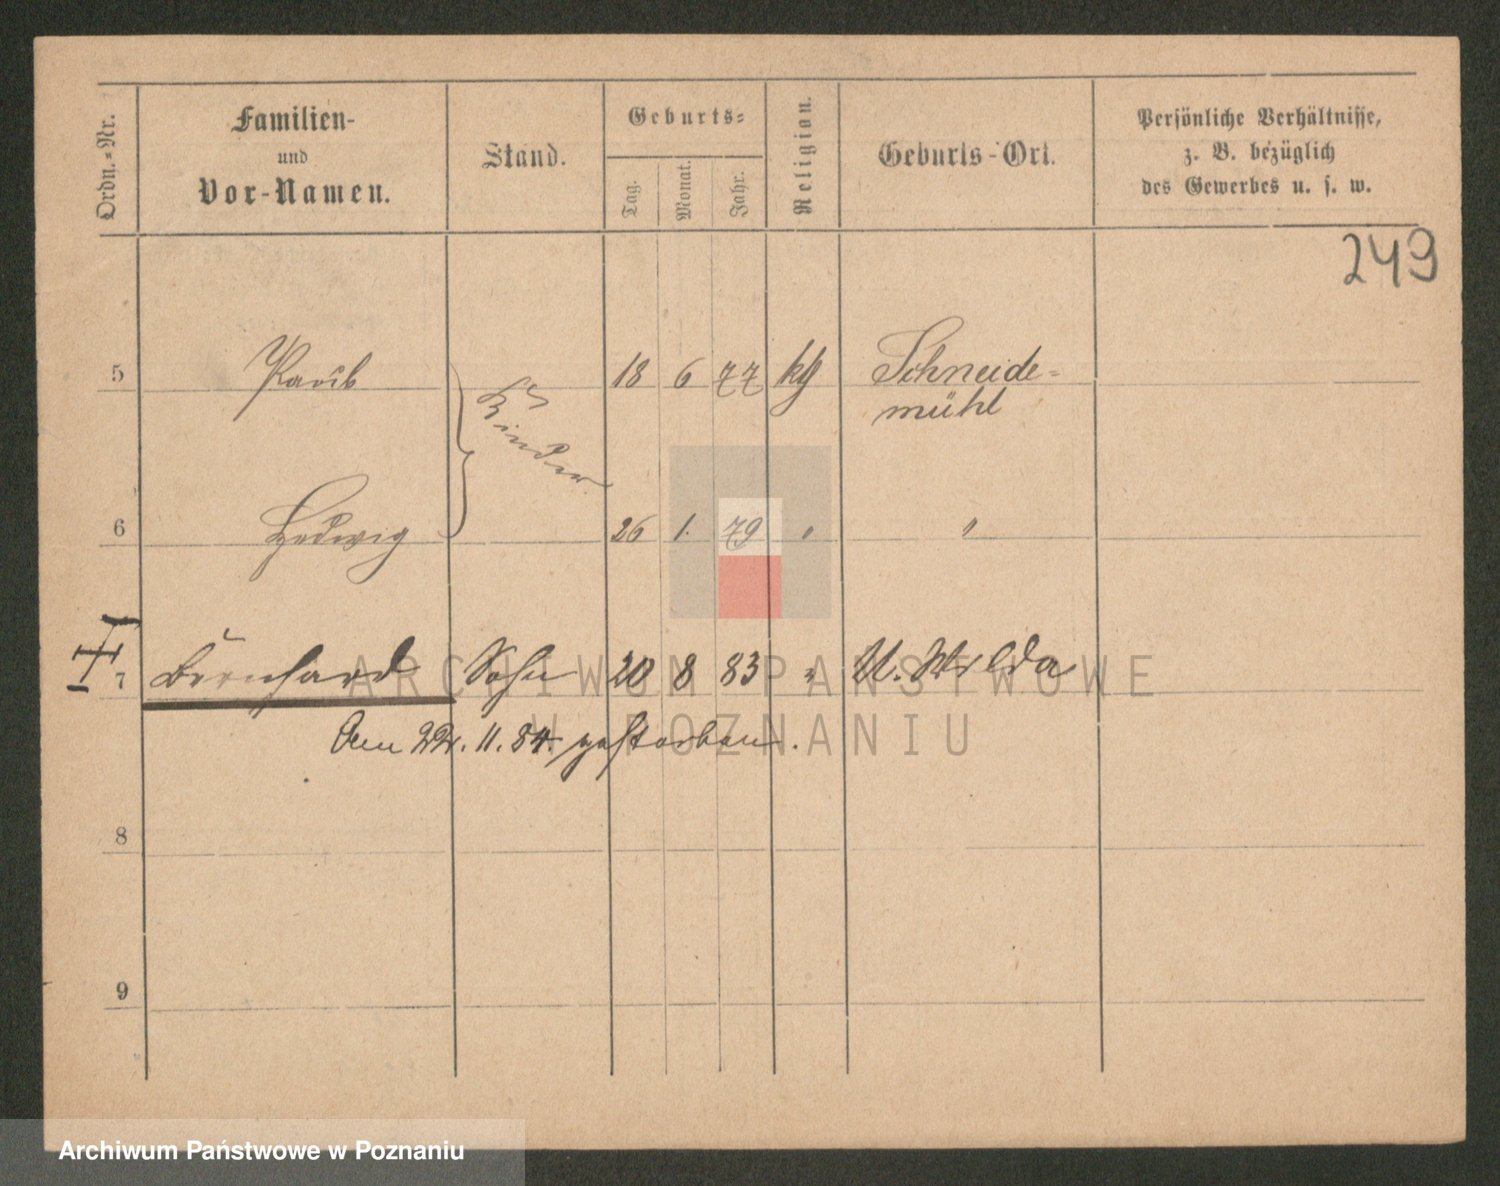 Ordn.-Nr.
Familien-
und
Vor-Namen.
Stand.
Geburts-
Tag.
Monat.
Jahr.
Religion.
Geburts-Ort.
Persönliche Verhältnisse,
z. B. bezüglich
des Gewerbes u. s. w.
249
5 18 6 77 kth Schneide-
mühl
Kinder
6 Hedwig 26 1. 79 " "
7 Bernhard Sohn 20 8 83 " U. Wilda
Am 22. 11. 84. gestorben.
8
9
ARCHIWUM PAŃSTWOWE
W POZNANIU
Archiwum Państwowe w Poznaniu